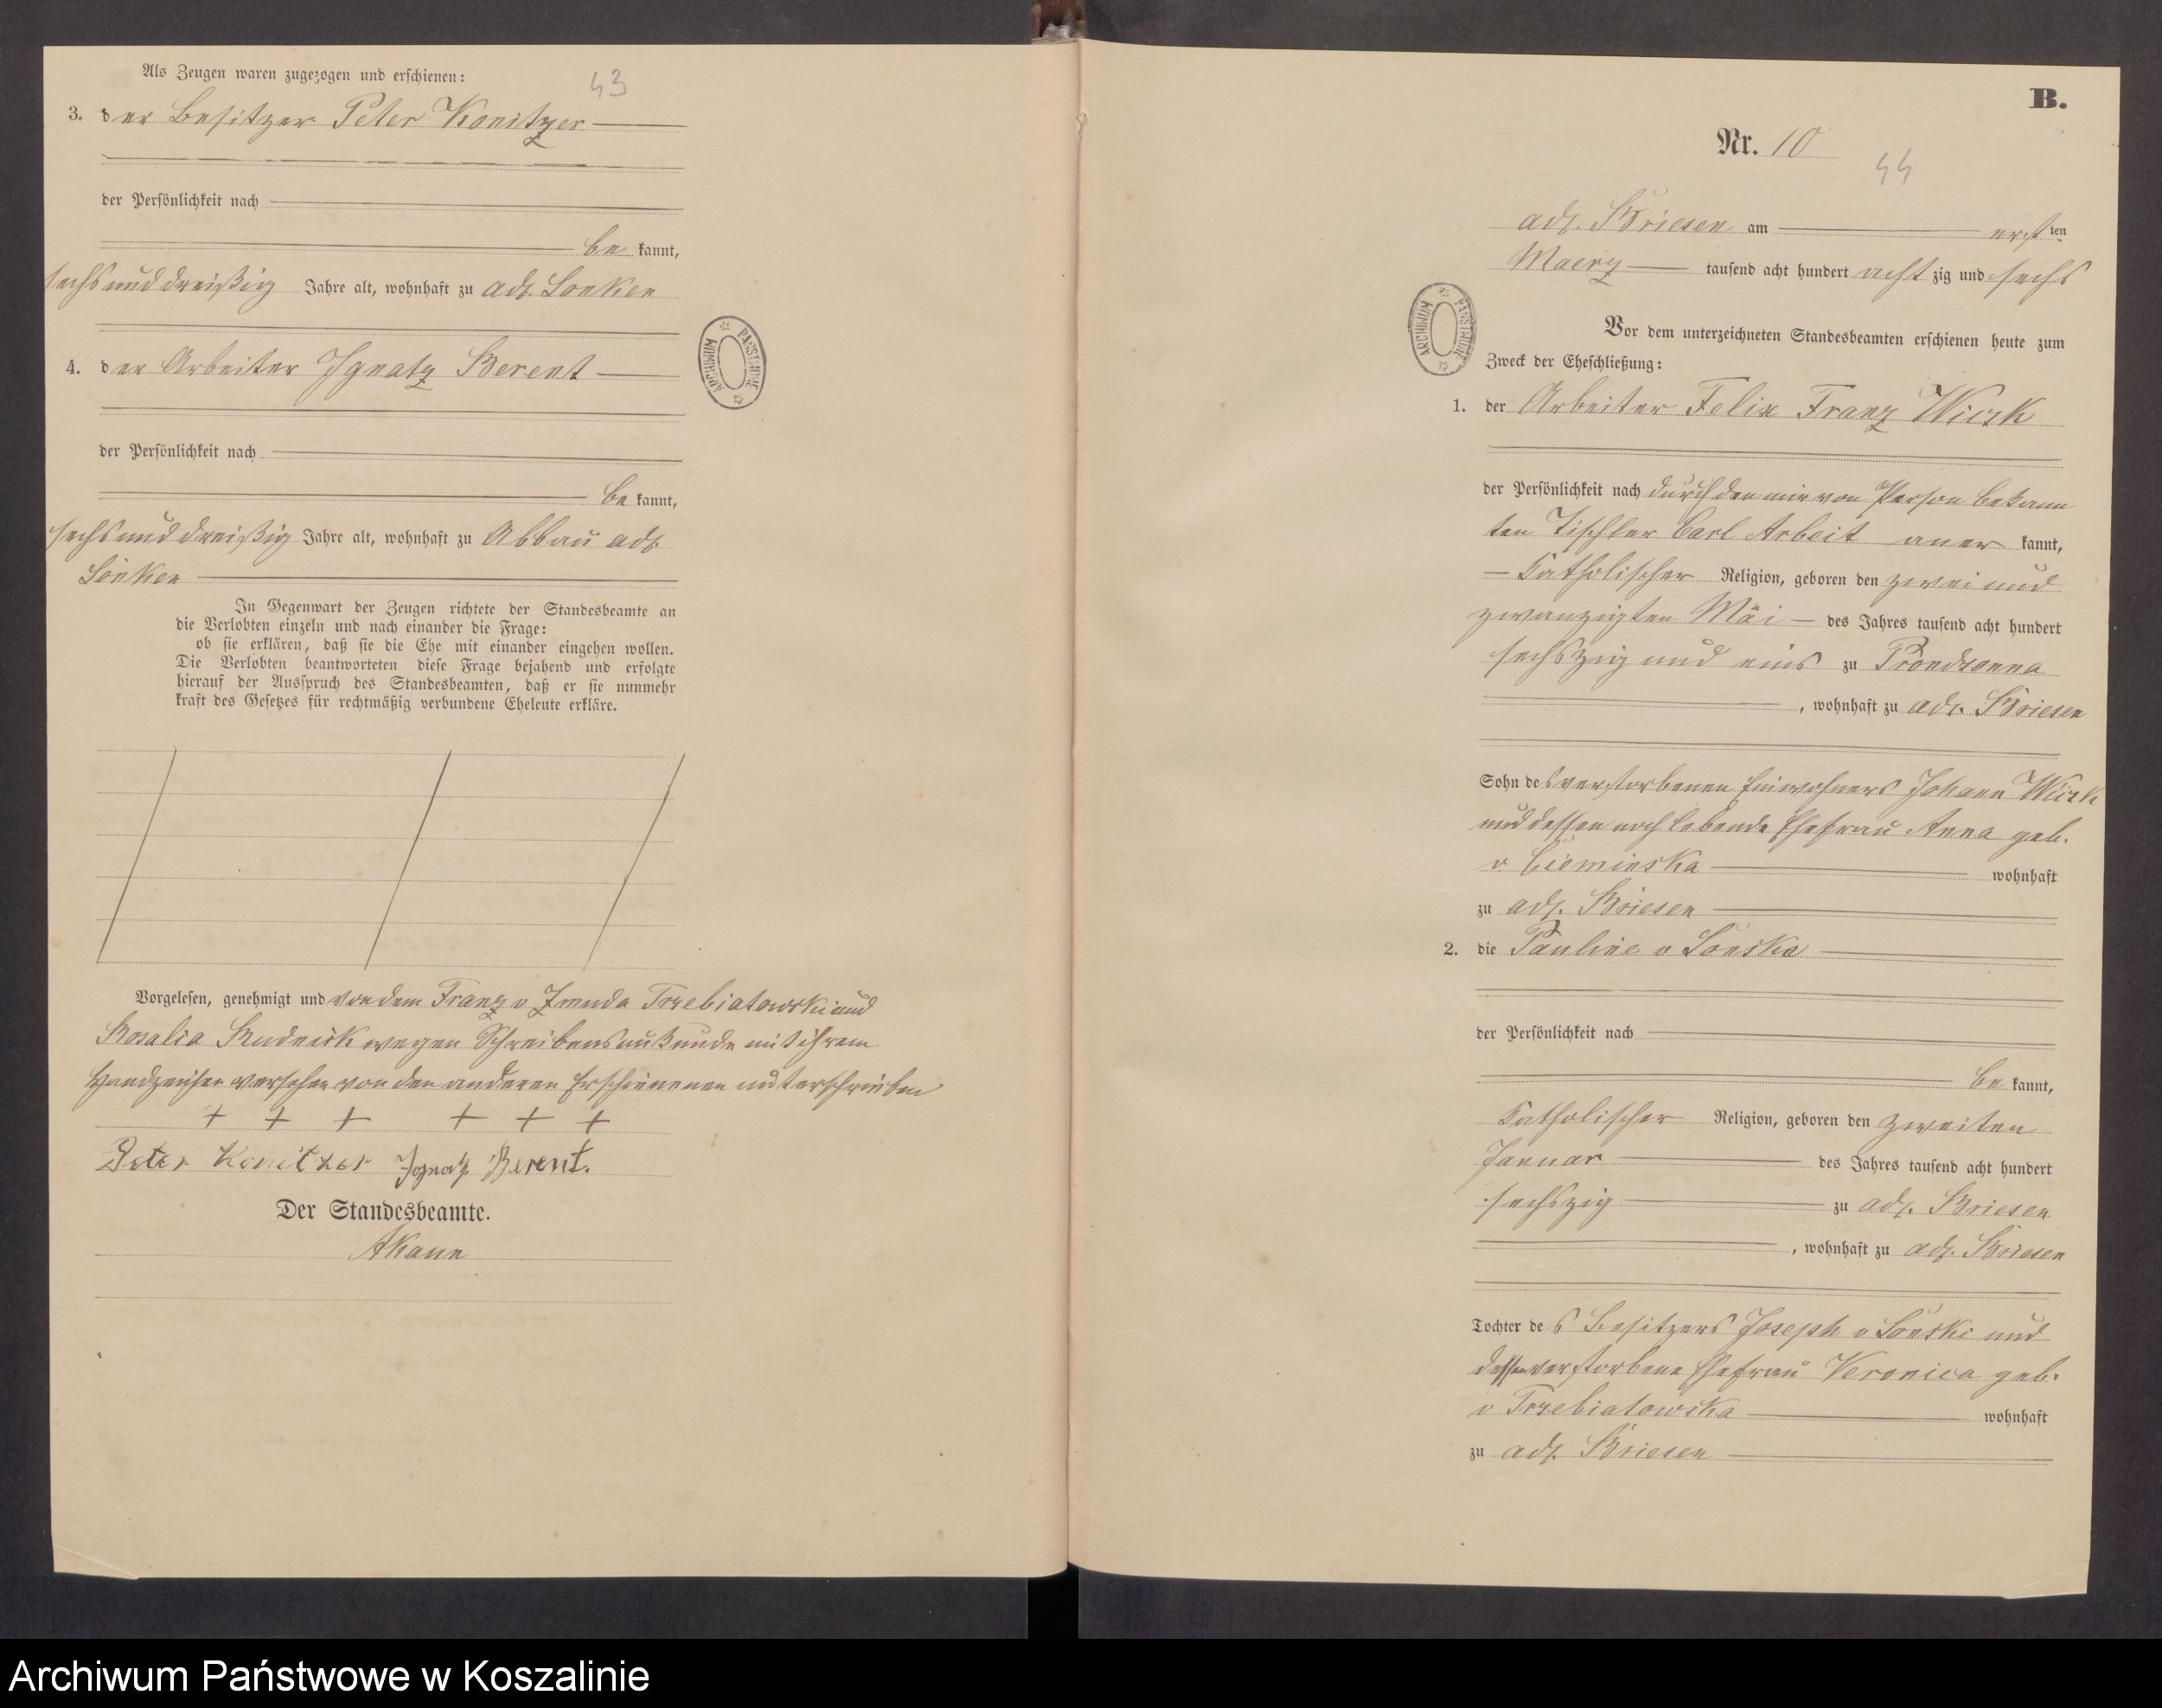 Als Zeugen waren zugezogen und erschienen:
43
3. der Besitzer Peter Konitzer
der Persönlichkeit nach
be kannt,
sechs und dreißig Jahre alt, wohnhaft zu adl. Lonken
4. der Arbeiter Ignatz Berent
der Persönlichkeit nach
be kannt,
sechs und dreißig Jahre alt, wohnhaft zu Abbau adl.
Lonken
In Gegenwart der Zeugen richtete der Standesbeamte an
die Verlobten einzeln und nach einander die Frage:
ob sie erklären, daß sie die Ehe mit einander eingehen wollen.
Die Verlobten beantworteten diese Frage bejahend und erfolgte
hierauf der Ausspruch des Standesbeamten, daß er sie nunmehr
kraft des Gesetzes für rechtmäßig verbundene Eheleute erkläre.
Vorgelesen, genehmigt und von dem Franz v Zmuda Trzebiatowski und
Rosalia Rudnick wegen Schreibensunkunde mit ihrem
Handzeichen versehen von den anderen Erschienenen unterschrieben
+ + + + + +
Peter Konitzer Ignatz Berent.
Der Standesbeamte.
AKann
ARCHIWUM PAŃSTWOWE
B.
Nr. 10
44
adl. Briesen am ersten
Maerz tausend acht hundert acht zig und sechs
ARCHIWUM PAŃSTWOWE
Vor dem unterzeichneten Standesbeamten erschienen heute zum
Zweck der Eheschließung:
1. der Arbeiter Felix Franz Wirk
der Persönlichkeit nach durch den mir von Person bekann
ten Tischler Carl Arbeit aner kannt,
katholischer Religion, geboren den zwei und
zwanzigten Mai des Jahres tausend acht hundert
sechszig und eins zu Prondzonna
, wohnhaft zu adl. Briesen
Sohn des verstorbenen Einwohners Johann Wirk
und dessen noch lebende Ehefrau Anna geb.
v Cieminska wohnhaft
zu adl. Briesen
2. die Pauline v Lonska
der Persönlichkeit nach
be kannt,
katholischer Religion, geboren den zweiten
Januar des Jahres tausend acht hundert
sechszig zu adl. Briesen
, wohnhaft zu adl. Briesen
Tochter des Besitzers Joseph v Lonski und
dessen verstorbene Ehefrau Veronica geb.
v Trzebiatowska wohnhaft
zu adl. Briesen
Archiwum Państwowe w Koszalinie